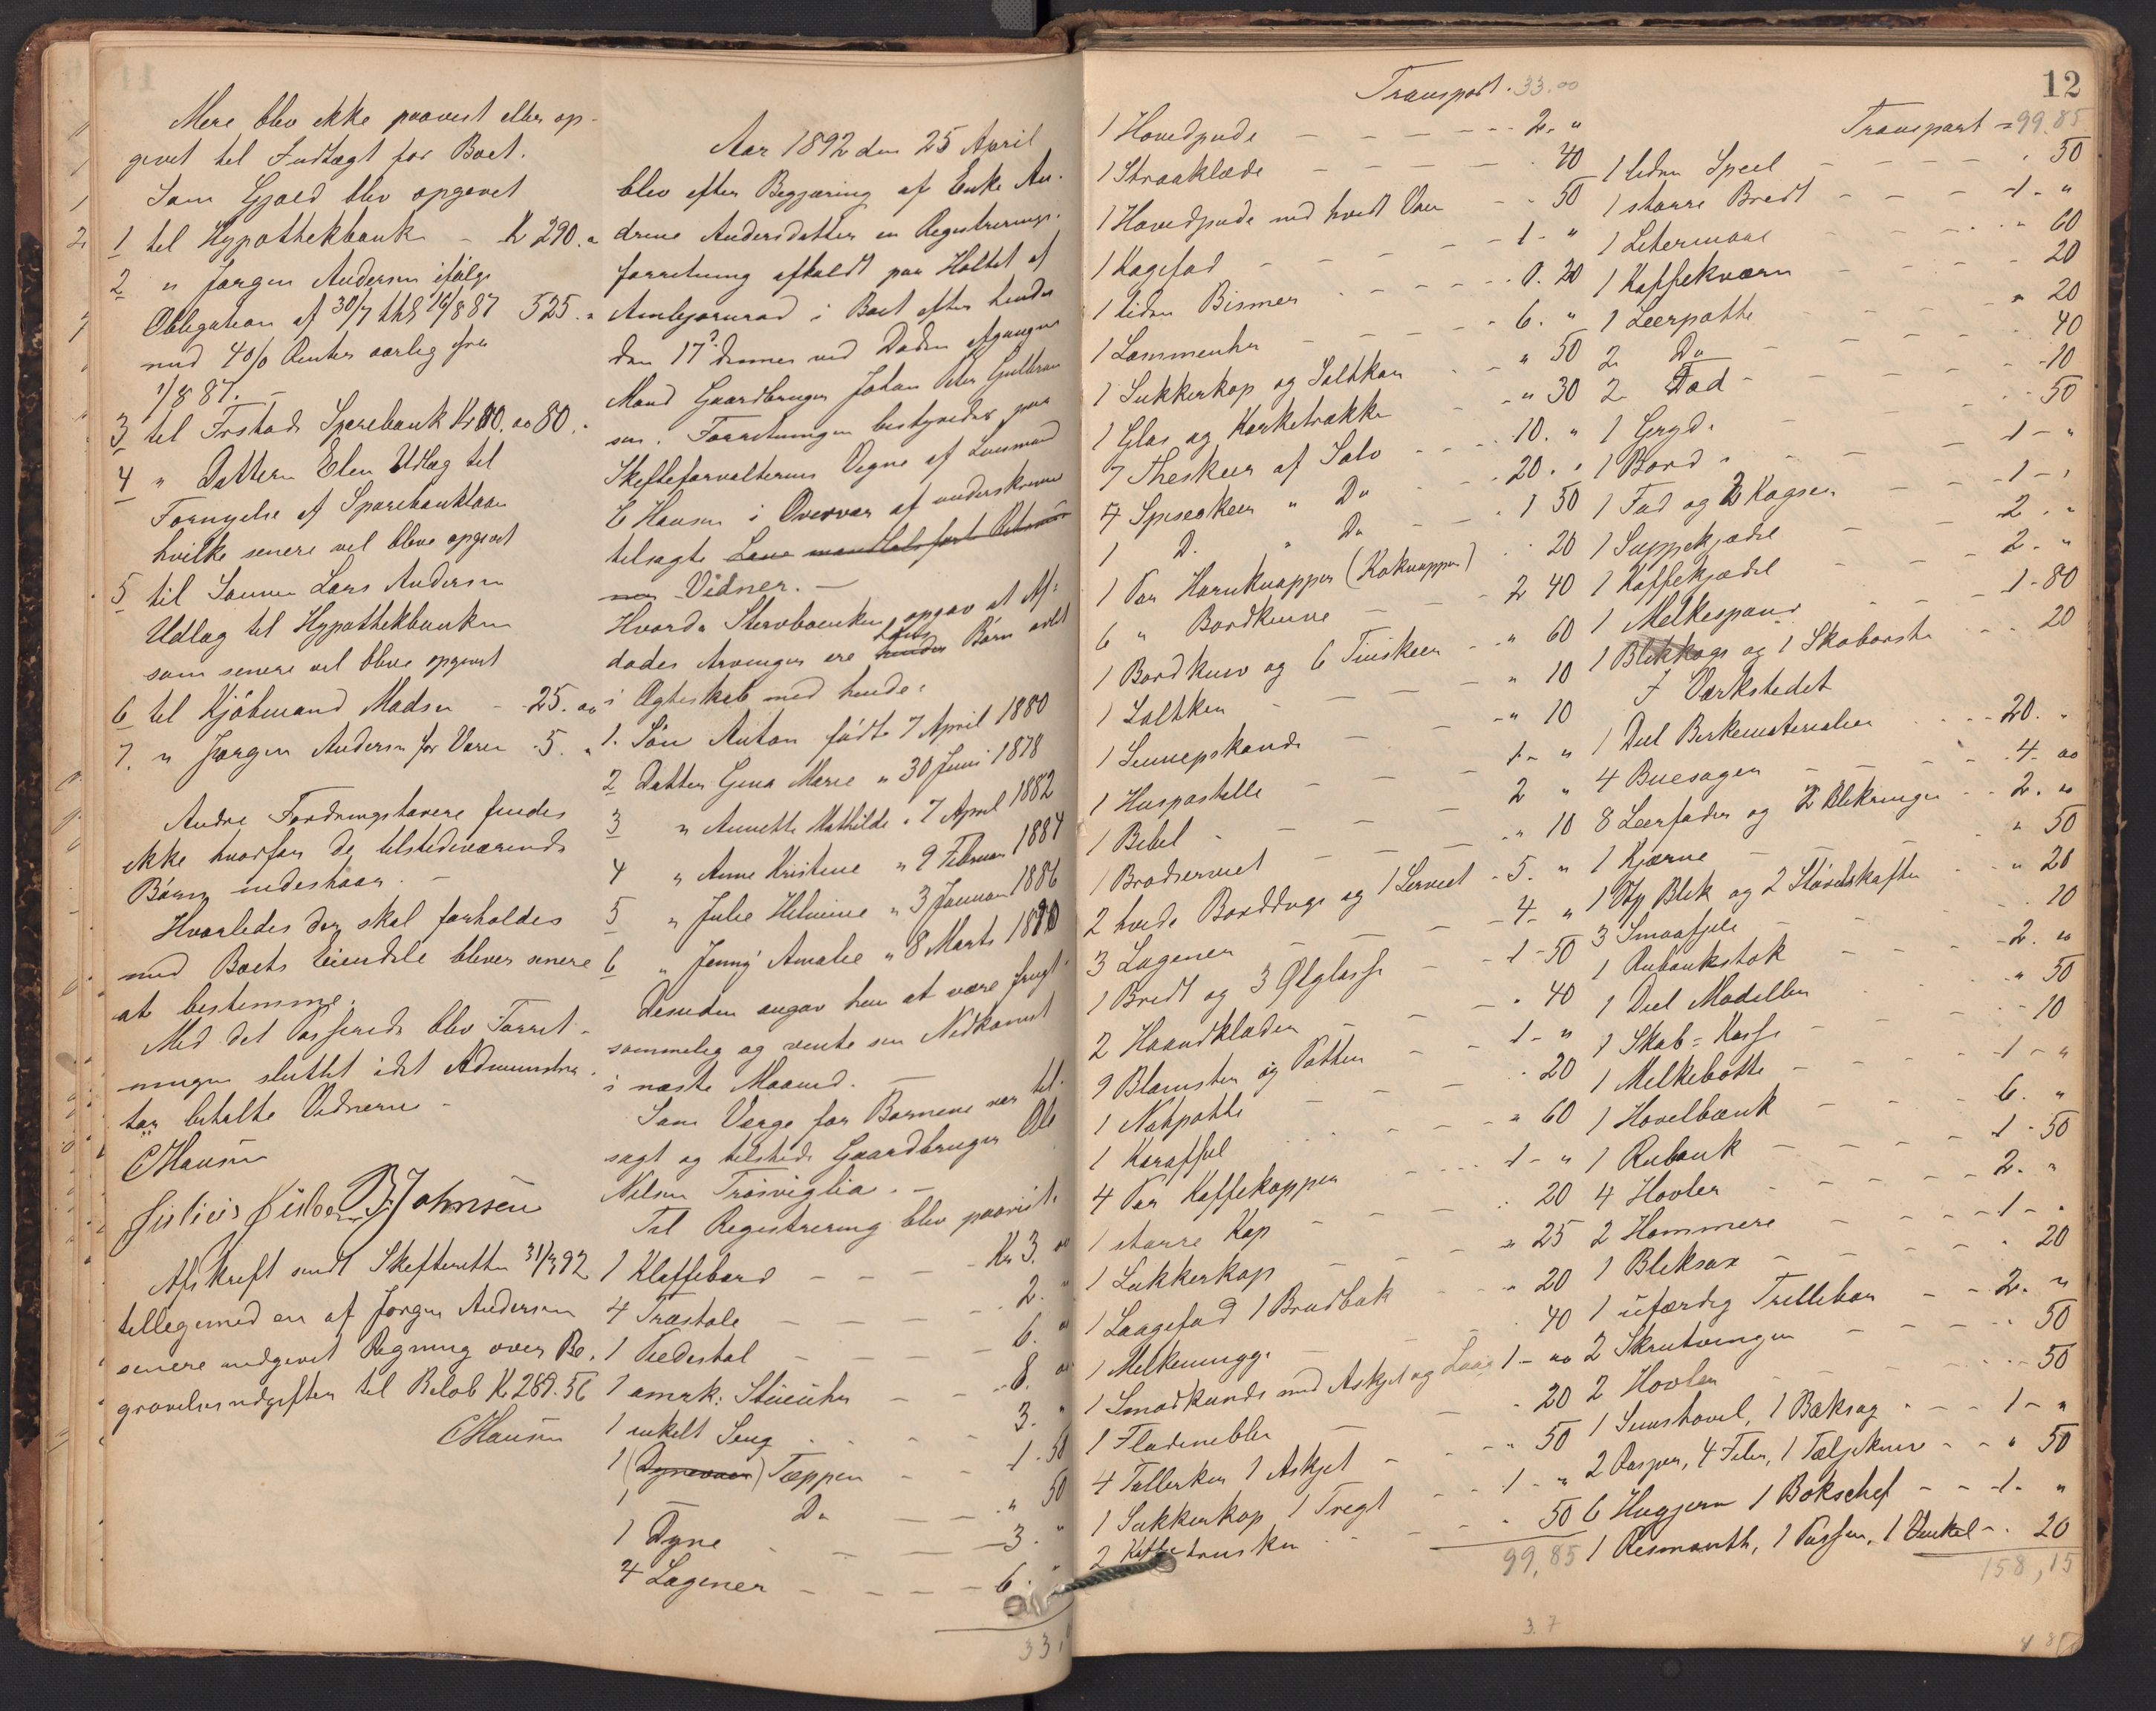 Mere blev ikke paavist eller op-
givet til Indtægt for Boet.
Som Gjæld blev opgivet
1 til Hypothekbank - Kr 290. "
2 " Jørgen Andersen ifølge
Obligation af 30/7 thl 16/8 87 525. "
med 4 0/0 Renter aarlig fra
1/8 87. -
3 til Sparebank Kr 80. oo 80. "
4 " Datteren Elen Udlæg til
Fornyelse af Sparebanklaan
hvilke senere vil blive opgivet
5 til Sønnen Lars Andersen
Udlæg til Hypothekbanken
som senere vil blive opgivet
6 til Kjøbmand Madsen - 25. oo
7. " Jørgen Andersen for Varer 5. "
Andre Fordringshavere findes
ikke hvorfor de tilstedeværende
Børn indestaar. -
Hvorledes der skal forholdes
med Boets Eiendele bliver senere
at bestemme.
Med det Passerede blev Forret-
ningen sluttet idet Administra-
tor betalte Vidnerne -
CHansen
B. Johnsen
Afskrift sendt Skifteretten 31/3 92
tilligemed en af Jørgen Andersen
senere indgivet Regning over Be-
gravelsesudgifter til Beløb Kr 269.56
CHansen
Aar 1892 den 25 April
blev efter Begjæring af Enke An-
drine Andersdatter en Registrerings-
forretning afholdt paa Holtet af
i Boet efter hendes
den 17 dennes ved Døden afgangne
Mand Gaardbruger Johan Peter Gulbran
sen. Forretningen bestyredes paa
Skifteforvalterens Vegne af Lensmand
C Hansen i Overvær af underskrevne
tilsagte
Vidner. -
Hvorda Stervboenken opgav at Af-
dødes Arvinger ere hendes hans Børn avlet
i Ægteskab med hende:
1. Søn Anton fødte 7 April 1880
2 Datter Gina Marie " 30 Juni 1878
3 " Annette Mathilde " 7 April 1882
4 " Anne Kristine " 9 Februar 1884
5 " Julie Helmine " 3 Januar 1886
6 " Jenny Amalie " 8 Marts 1890
Desuden angav hun at være frugt-
sommelig og vente sin Nedkomst
i næste Maaned. -
Som Verge for Børnene var til-
sagt og tilstede Gaardbruger Ole
Nilsen Trøsviglia. -
Til Registrering blev paavist.
1 Klaffebord - - - - Kr 3. oo
4 Træstole - - - - 2. "
1 Piedestal - - - - 6. "
1 amrk: Stueuhr - - 8. oo
1 enkelt Seng - - - 3. "
1 (Dynevaar) Tæppen - - 1. 50
1 Do - - " 50
1 Dyne - - - - 3. "
4 Lagener - - - - 6. "
33,
12
Transport. 33.00
1 Hovedpude - - - - - 2. "
1 Straaklæde - - - - - 40
1 Hovedpude med hvidt Vaar - - 50
1 Kagefad - - - - 1 - "
1 liden Bismer - - - - 0. 20
1 Lommeuhr - - - - 6. "
1 Sukkerkop og Saltkar - - " 50
1 Glas og Korketrækker - - " 30
7 Theskeer af Sølv - - 10. "
7 Spiseskeer " Do - - 20. "
1 D. " Do - - 1 50
1 Par Hornknapper (Kaknapper) - 20
6 " Bordknive - - - 2 40
1 Bordkniv og 6 Tinskeer - - " 60
1 Saltkar - - - " 10
1 Sennepskande - - - " 10
1 Huspostille - - - 1 - "
1 Bibel - - - - 2 "
1 Brødserviet - - - " 10
2 hvide Bordduge og 1 Serviet - 5. "
3 Lagener - - - - 4 - "
1 Bredt og 3 Ølglasse - - 1 - 50
2 Haandklæder - - - " 40
9 Blomster og Potter - - 1 - "
1 Natpotte - - - - 20
1 Karaffel - - - - " 60
4 Par Kaffekopper - - - 1 - "
1 større Kop - - - - 20
1 Sukkerkop - - - " 25
1 Laagefad 1 Brødbak - - " 20
1 Melkemugge - - - 40
1 Smørkande med Askjet og Laag 1 - oo
1 - - - 20
4 Tallerken 1 Askjet - - " 50
1 Sukkerkop 1 Tragt - - 1 - "
2 - - - 50
99,85
Transport = 99.85
1 liden Speil - - - - 50
1 større Bredt - - - 1 - "
1 Litermaal - - - - 60
1 Kaffekværn - - - - 20
1 Leerpotte - - - " 20
2 Do - - - - 40
2 Fad - - - - 10
1 Gryde - - - - 50
1 Bord - - - 1 - "
1 Fad og 2 Kagser - - 1 - "
1 Suppekjedel - - - 2. "
1 Kaffekjedel - - - 2. "
1 Melkespand - - - 1 - 80
1 Blikkage og 1 Skobørste - - 20
I Værkstedet
1 Deel Birkematerialier - - 20. "
4 Buesager - - - - 4 - oo
8 Leerfader og 2 Blikringe - - 2. "
1 Kjærne - - - - " 50
1 Stp Blik og 2 - - " 20
3 Smaafjele - - - - 10
1 Rubankstok - - - 2. "
1 Deel Modeller - - - " 50
1 Skab = Kasse - - - - 10
1 Melkebøtte - - - 1 - "
1 Høvelbænk - - - 6. "
1 Rubank - - - 1 - 50
4 Høvler - - - - 2. "
2 Hammere - - - 1 - "
1 Bliksax - - - " 20
1 ufærdig Trillebør - - 2. "
2 Skrutvinger - - - - 50
2 Høvler - - - - 50
1 Simshøvel, 1 Baksag - - 1 - "
2 Rasper, 4 Filer, 1 Tæljekniv - - " 50
6 Hugjern 1 - - 1 - "
1 Resmaath, 1 Passer, 1 Vinkel - . 20
158,15
3.7